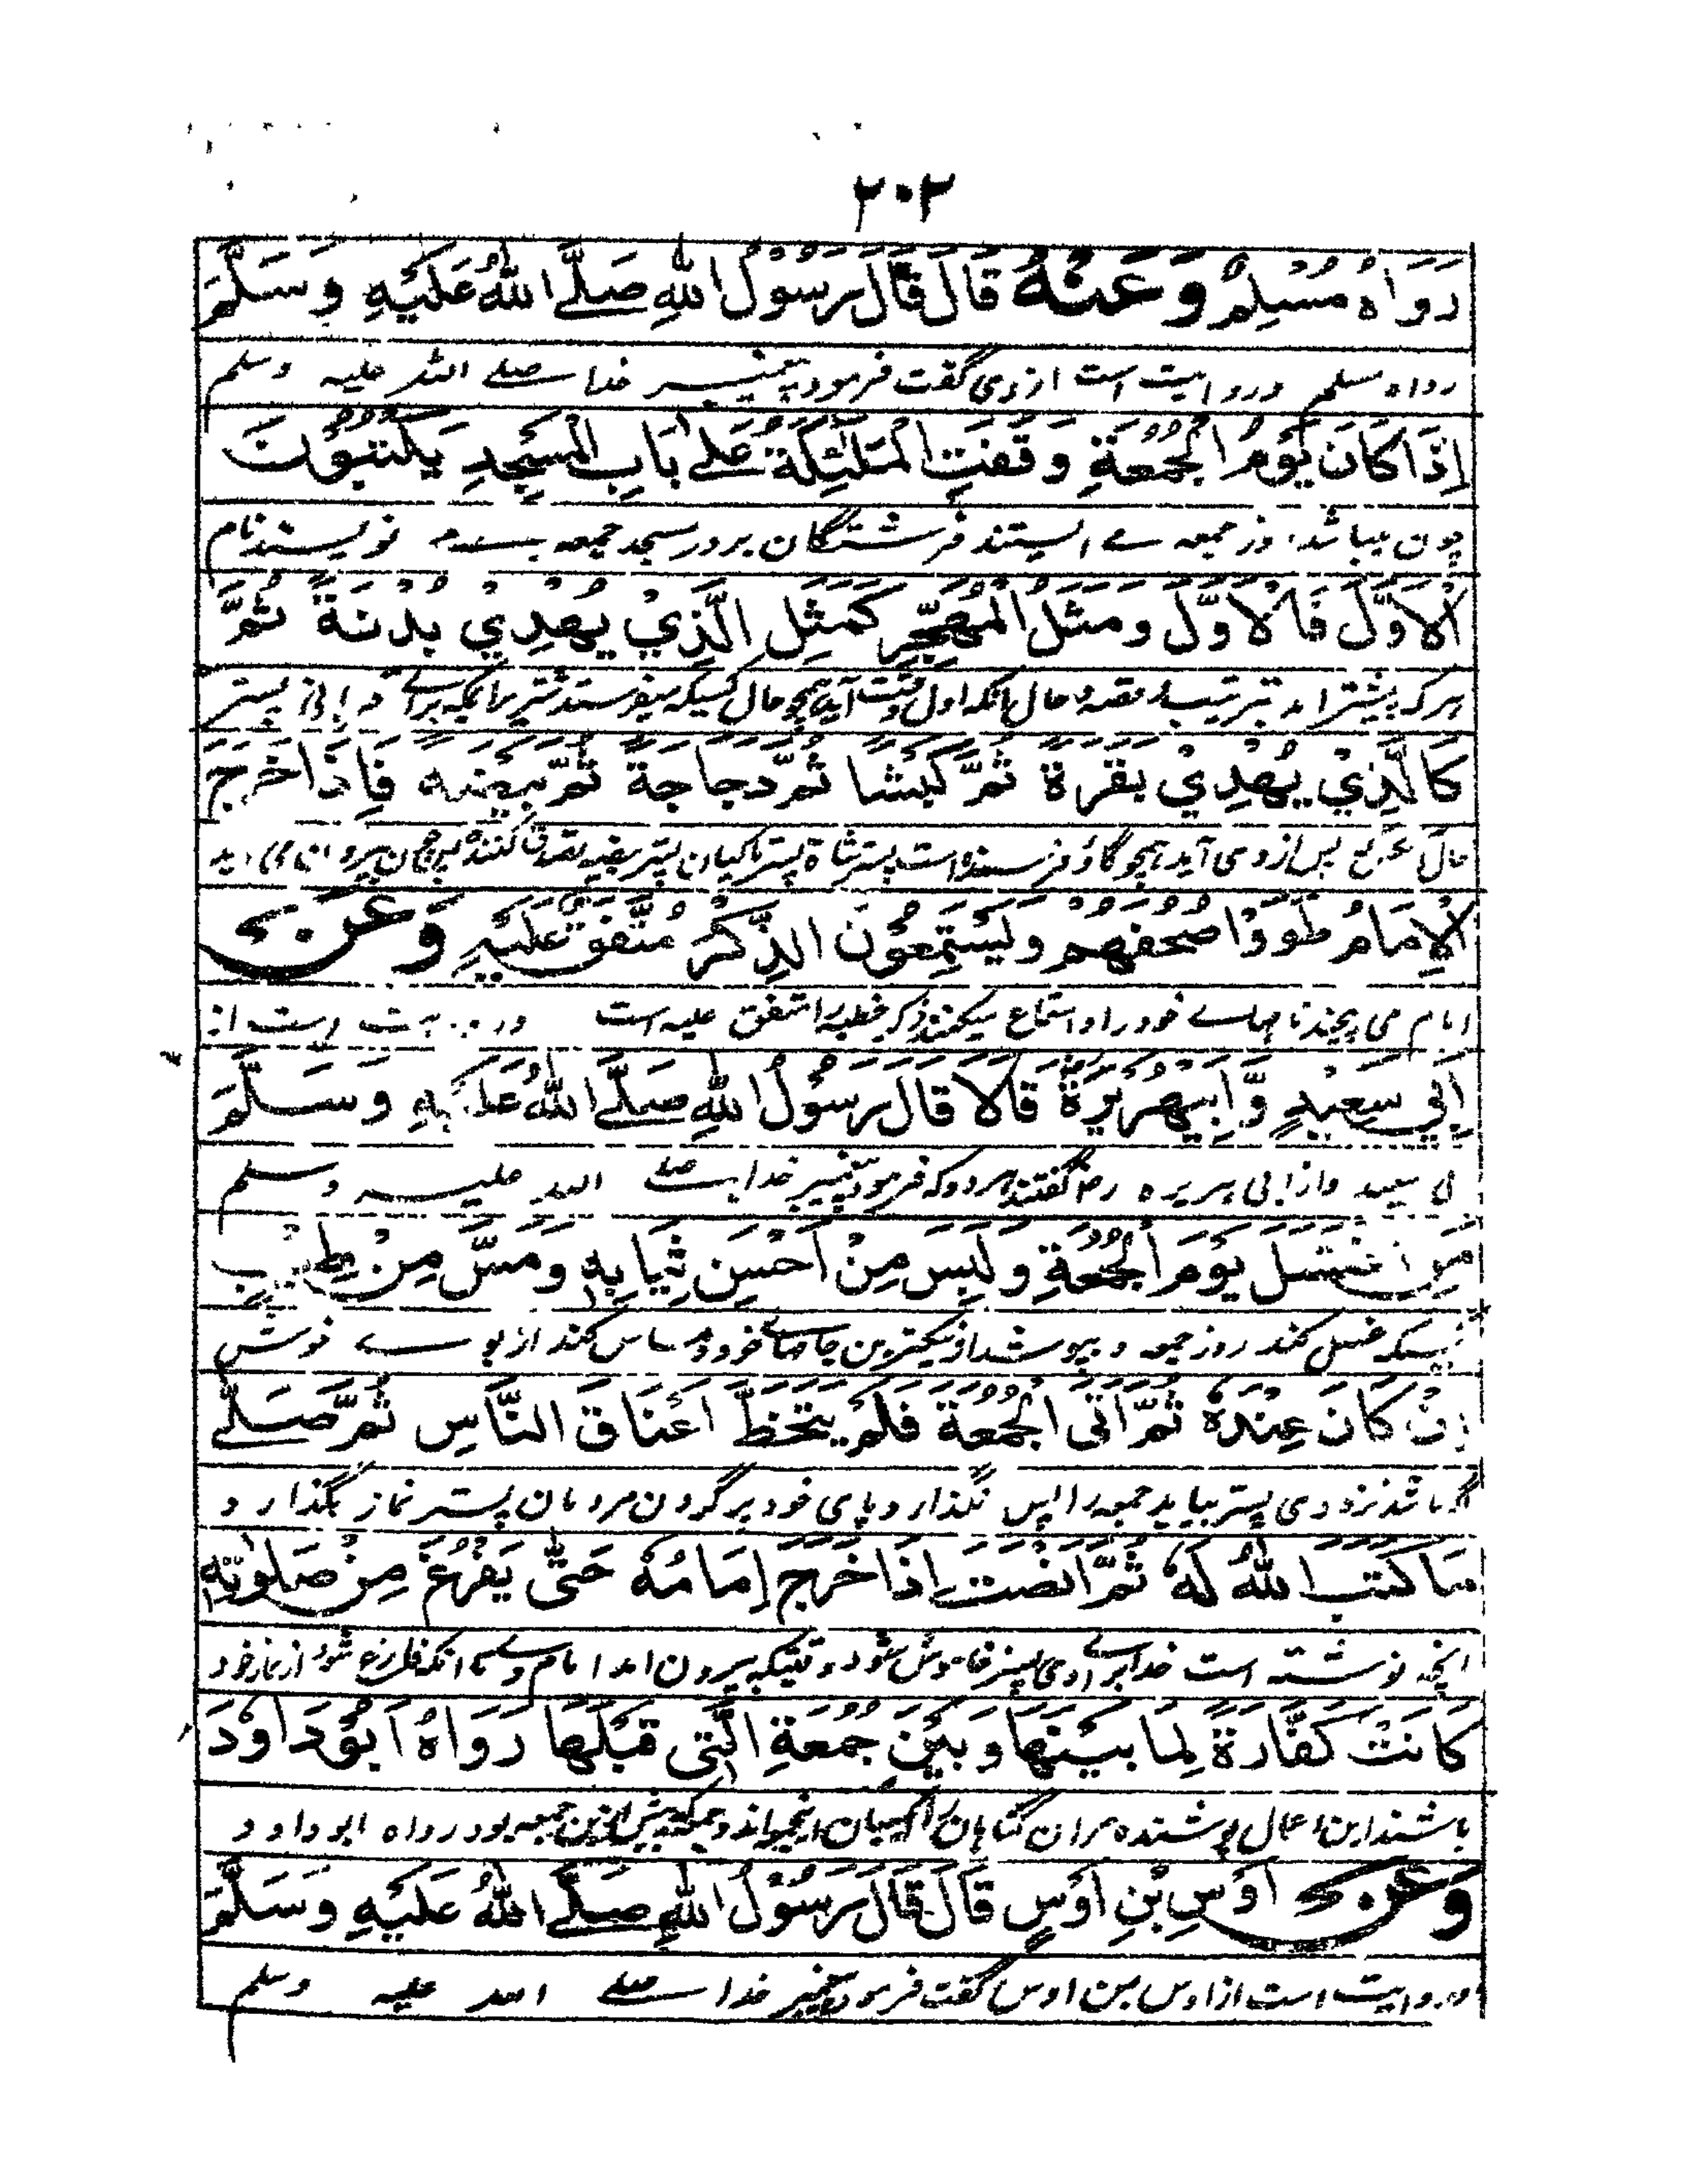 ٢٠٢
رَوَاهُ مُسْلِمٌ وَعَنْهُ قَالَ قَالَ رَسُوْلُ اللهِ صَلَّے اللهُ عَلَيْهِ وَسَلَّمَ
رواه مسلم وروایت است ازوی گفت فرمود پیغمبر خدا صلے اللہ علیہ وسلم
اِذَا كَانَ يَوْمُ الْجُمُعَةِ وَقَفَتِ الْمَلٰئِكَةُ عَلٰے بَابِ الْمَسْجِدِ يَكْتُبُوْنَ
چون میباشد روز جمعہ مے ایستند فرشتگان بر در مسجد جمعہ نویسند نام
الْاَوَّلَ فَالْاَوَّلَ وَمَثَلُ الْمُهَجِّرِ كَمَثَلِ الَّذِيْ يُهْدِيْ بُدْنَةً ثُمَّ
ہرکہ پیشتر حال آنکہ اول وقت آید ہمچو حال کسیکہ میفرستد شتر پستر
كَالَّذِيْ يُهْدِيْ بَقَرَةً ثُمَّ كَبْشًا ثُمَّ دَجَاجَةً ثُمَّ بَيْضَه فَاِذَا خَرَجَ
پس ازو می آید ہمچو گاؤ است پستر شاة پستر ماکیان پستر بیضه
الْاِمَامُ طَوَوْا صُحُفَهُمْ وَيَسْتَمِعُوْنَ الذِّكْرَ مُتَّفَقٌ عَلَيْهِ وَعَنْ
امام می پیچند خود را و استماع میکنند ذکر خطبہ را متفق علیہ است است از
اَبِيْ سَعِيْدٍ وَّاَبِيْهُرَيْرَةَ قَالَا قَالَ رَسُوْلُ اللهِ صَلَّے اللهُ عَلَيْهِ وَسَلَّمَ
بی سعید واز ابی ہریرہ رض گفتند ہردو کہ فرمود پیغمبر خدا صلے اللہ علیہ وسلم
مَنِ اغْتَسَلَ يَوْمَ الْجُمُعَةِ وَلَبِسَ مِنْ اَحْسَنِ ثِيَابِهٖ وَمَسَّ مِنْ طِيْبٍ
کسیکہ غسل کند روز جمعہ و بپوشد از نیکترین جامہاے خود و مساس کند از بوے خوش
اِنْ كَانَ عِنْدَهٗ ثُمَّ اَتَى الْجُمُعَةَ فَلَمْ يَتَخَطَّ اَعْنَاقَ النَّاسِ ثُمَّ صَلّٰے
گر باشد نزد وی پستر بیاید جمعہ را پس نگذارد پای خود بر گردن مردمان پستر نماز بگذارد
مَا كَتَبَ اللهُ لَهٗ ثُمَّ اَنْصَتَ اِذَا خَرَجَ اِمَامُهٗ حَتّٰى يَفْرُغَ مِنْ صَلٰوتِهٖ
انچہ نوشتہ است خدا برای وی خاموش شود وقتیکہ بیرون آمد امام وے تا انکہ فارغ شود از نماز خود
كَانَتْ كَفَّارَةً لِمَا بَيْنَهَا وَبَيْنَ جُمُعَةِ الَّتِى قَبْلَهَا رَوَاهُ اَبُوْدَاوٗدَ
باشند این اعمال پوشنده مران گناہان را جمعہ بود رواہ ابوداود
وَعَنْ اَوْسِ بْنِ اَوْسٍ قَالَ قَالَ رَسُوْلُ اللهِ صَلَّے اللهُ عَلَيْهِ وَسَلَّمَ
وروایت است از اوس بن اوس گفت فرمود پیغمبر خدا صلے اللہ علیہ وسلم